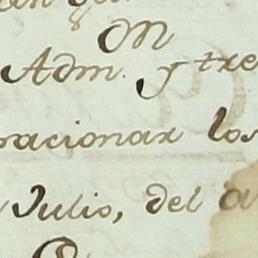 M
Adm. y tre
racionar los
Julio, del a